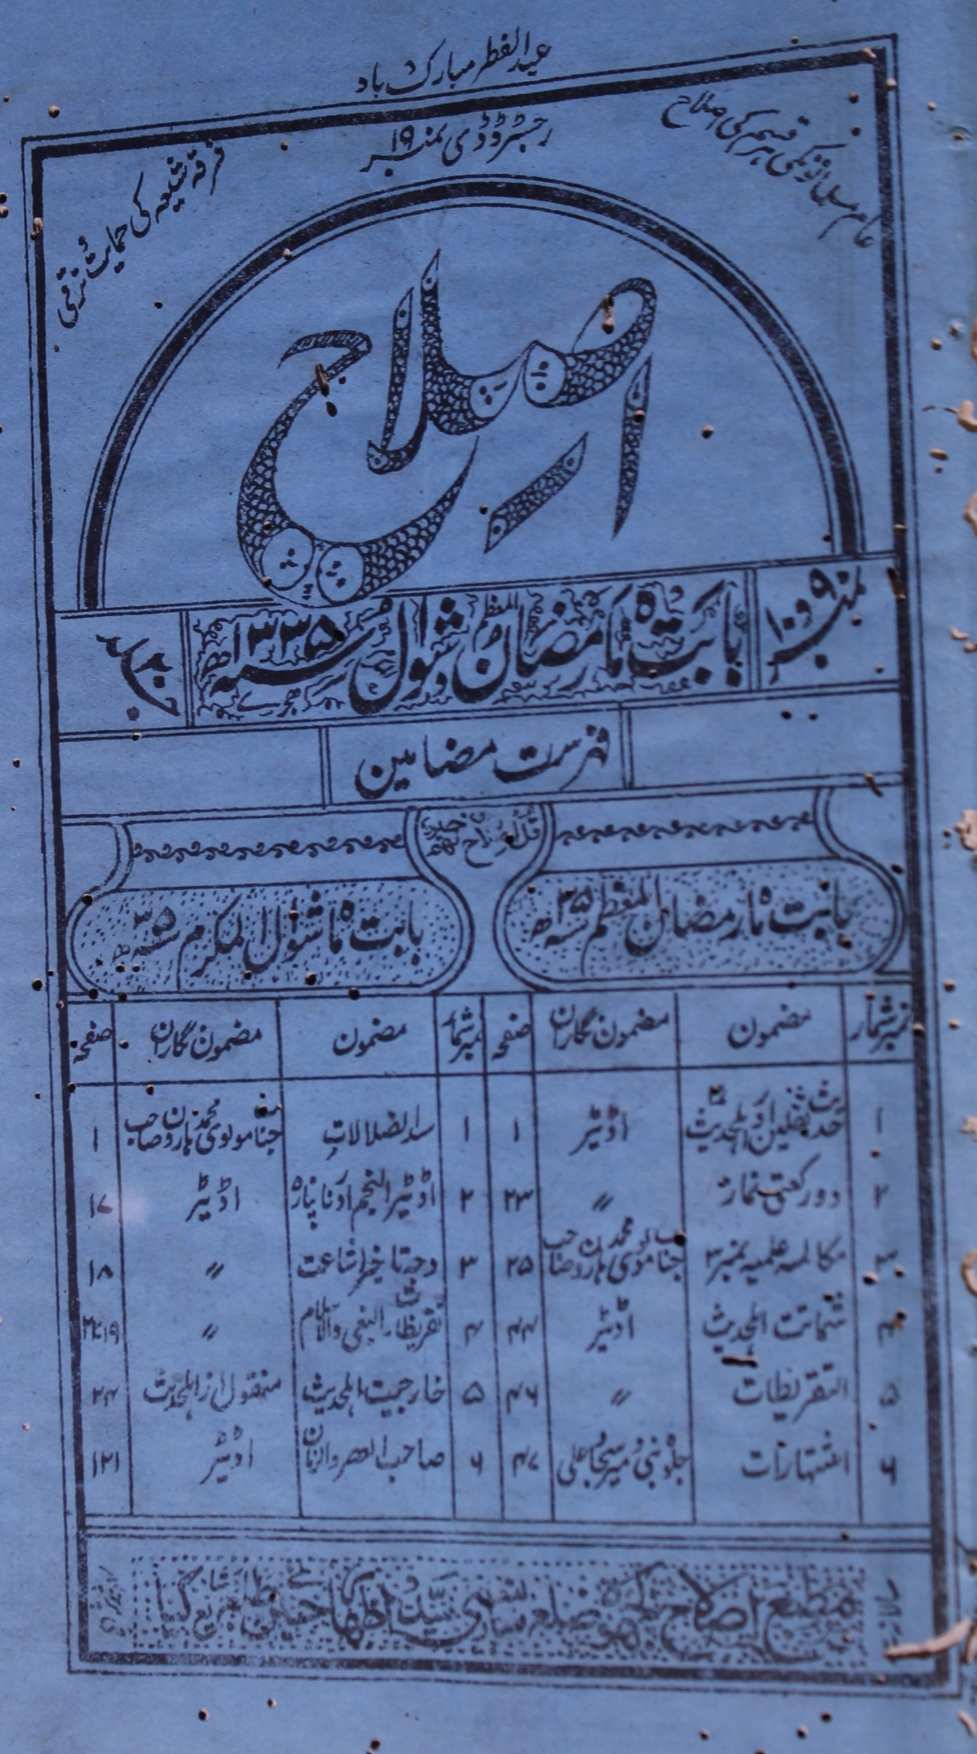 عید الفطر مبارک باد
رجسٹرڈ ڈی نمبر ۱۹
عام مسلمانوں کی ہر قسم کی اصلاح
فرقہ شیعہ کی حمایت و ترقی
اصلاح
نمبر ۹ و ۱۰
بابت ماہ رمضان المعظم و شوال سنہ ۱۳۳۵ھ
ہجرے
جلد ۲۰
فہرست مضامین
بابت ماہ رمضان المعظم سنہ ۳۵ھ
بابت ماہ شوال المکرم سنہ ۳۵ھ
نمبر شمار مضمون مضمون نگاران صفحہ نمبر شمار مضمون مضمون نگاران صفحہ
۱ حدیث ثقلین اور اہلحدیث اڈیٹر ۱ ۱ سد الضلالات جناب مولوی محمد ہارون صاحب ۱
۲ دو رکعتی نماز 〃 ۲۳ ۲ اڈیٹر النجم اور نا پناہ اڈیٹر ۱۷
۳ مکالمہ علمیہ نمبر ۳ جناب مولوی محمد ہارون صاحب ۲۵ ۳ وجہ تاخیر اشاعت 〃 ۱۸
۴ شماتت اہلحدیث اڈیٹر ۴۴ ۴ تقریظات 〃
۵ التقریظات 〃 ۴۶ ۵ خارجیت اہلحدیث منقول از اہلحدیث ۲۴
۶ اشتہارات ۴۷ ۶ صاحب العصر والزمان اڈیٹر ۱۲۱
مطبع اصلاح کھجوہ ضلع سارن